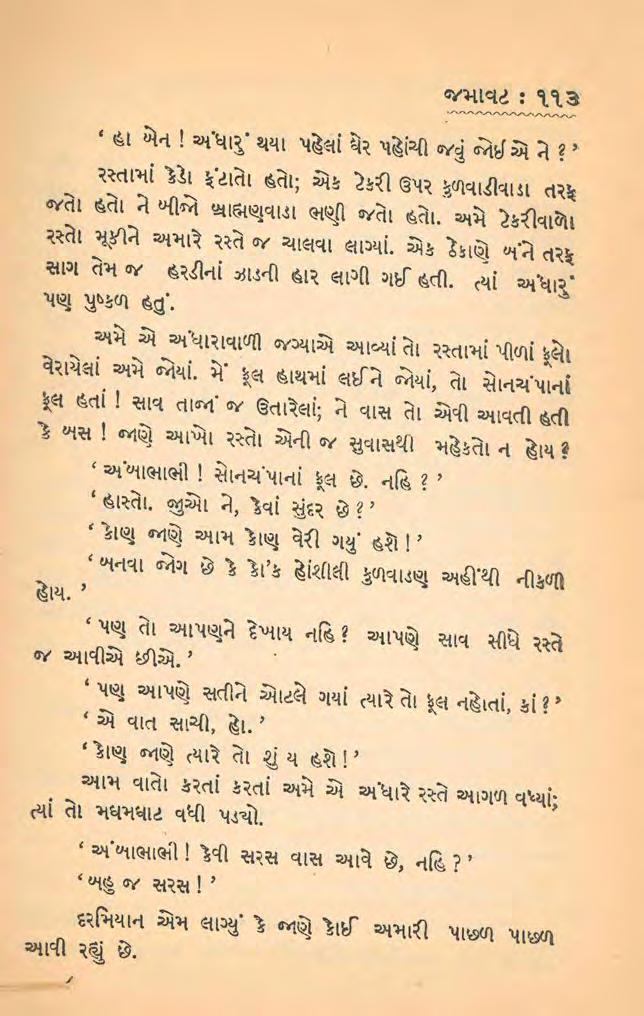 જમાવટ : ૧૧૩
‘ હા બેન ! અંધારું થયા પહેલાં ઘેર પહોંચી જવું જોઈએ ને ? ’
રસ્તામાં કેડો ફંટાતો હતો; એક ટેકરી ઉપર કુળવાડીવાડા તરફ
જતો હતો ને બીજો બ્રાહ્મણવાડા ભણી જતો હતો. અમે ટેકરીવાળો
રસ્તો મૂકીને અમારે રસ્તે જ ચાલવા લાગ્યાં. એક ઠેકાણે બંને તરફ
સાગ તેમ જ હરડીનાં ઝાડની હાર લાગી ગઈ હતી. ત્યાં અંધારું
પણ પુષ્કળ હતું.
અમે એ અંધારાવાળી જગ્યાએ આવ્યાં તો રસ્તામાં પીળાં ફૂલો
વેરાયેલાં અમે જોયાં. મેં ફૂલ હાથમાં લઈને જોયાં, તો સોનચંપાનાં
ફૂલ હતાં ! સાવ તાજાં જ ઉતારેલાં; ને વાસ તો એવી આવતી હતી
કે બસ ! જાણે આખો રસ્તો એની જ સુવાસથી મહેકતો ન હોય ?
‘ અંબાભાભી ! સોનચંપાનાં ફૂલ છે. નહિ ? ’
‘ હાસ્તો. જુઓ ને, કેવાં સુંદર છે ? ’
‘ કોણ જાણે આમ કોણ વેરી ગયું હશે ! ’
‘ બનવા જોગ છે કે કો’ક હોંશીલી કુળવાડણ અહીંથી નીકળી
હોય. ’
‘ પણ તો આપણને દેખાય નહિ ? આપણે સાવ સીધે રસ્તે
જ આવીએ છીએ. ’
‘ પણ આપણે સતીને ઓટલે ગયાં ત્યારે તો ફૂલ નહોતાં, કાં ? ’
‘ એ વાત સાચી, હો. ’
‘ કોણ જાણે ત્યારે તો શું ય હશે ! ’
આમ વાતો કરતાં કરતાં અમે એ અંધારે રસ્તે આગળ વધ્યાં;
ત્યાં તો મઘમઘાટ વધી પડ્યો.
‘ અંબાભાભી ! કેવી સરસ વાસ આવે છે, નહિ ? ’
‘ બહુ જ સરસ ! ’
દરમિયાન એમ લાગ્યું કે જાણે કોઈ અમારી પાછળ પાછળ
આવી રહ્યું છે.